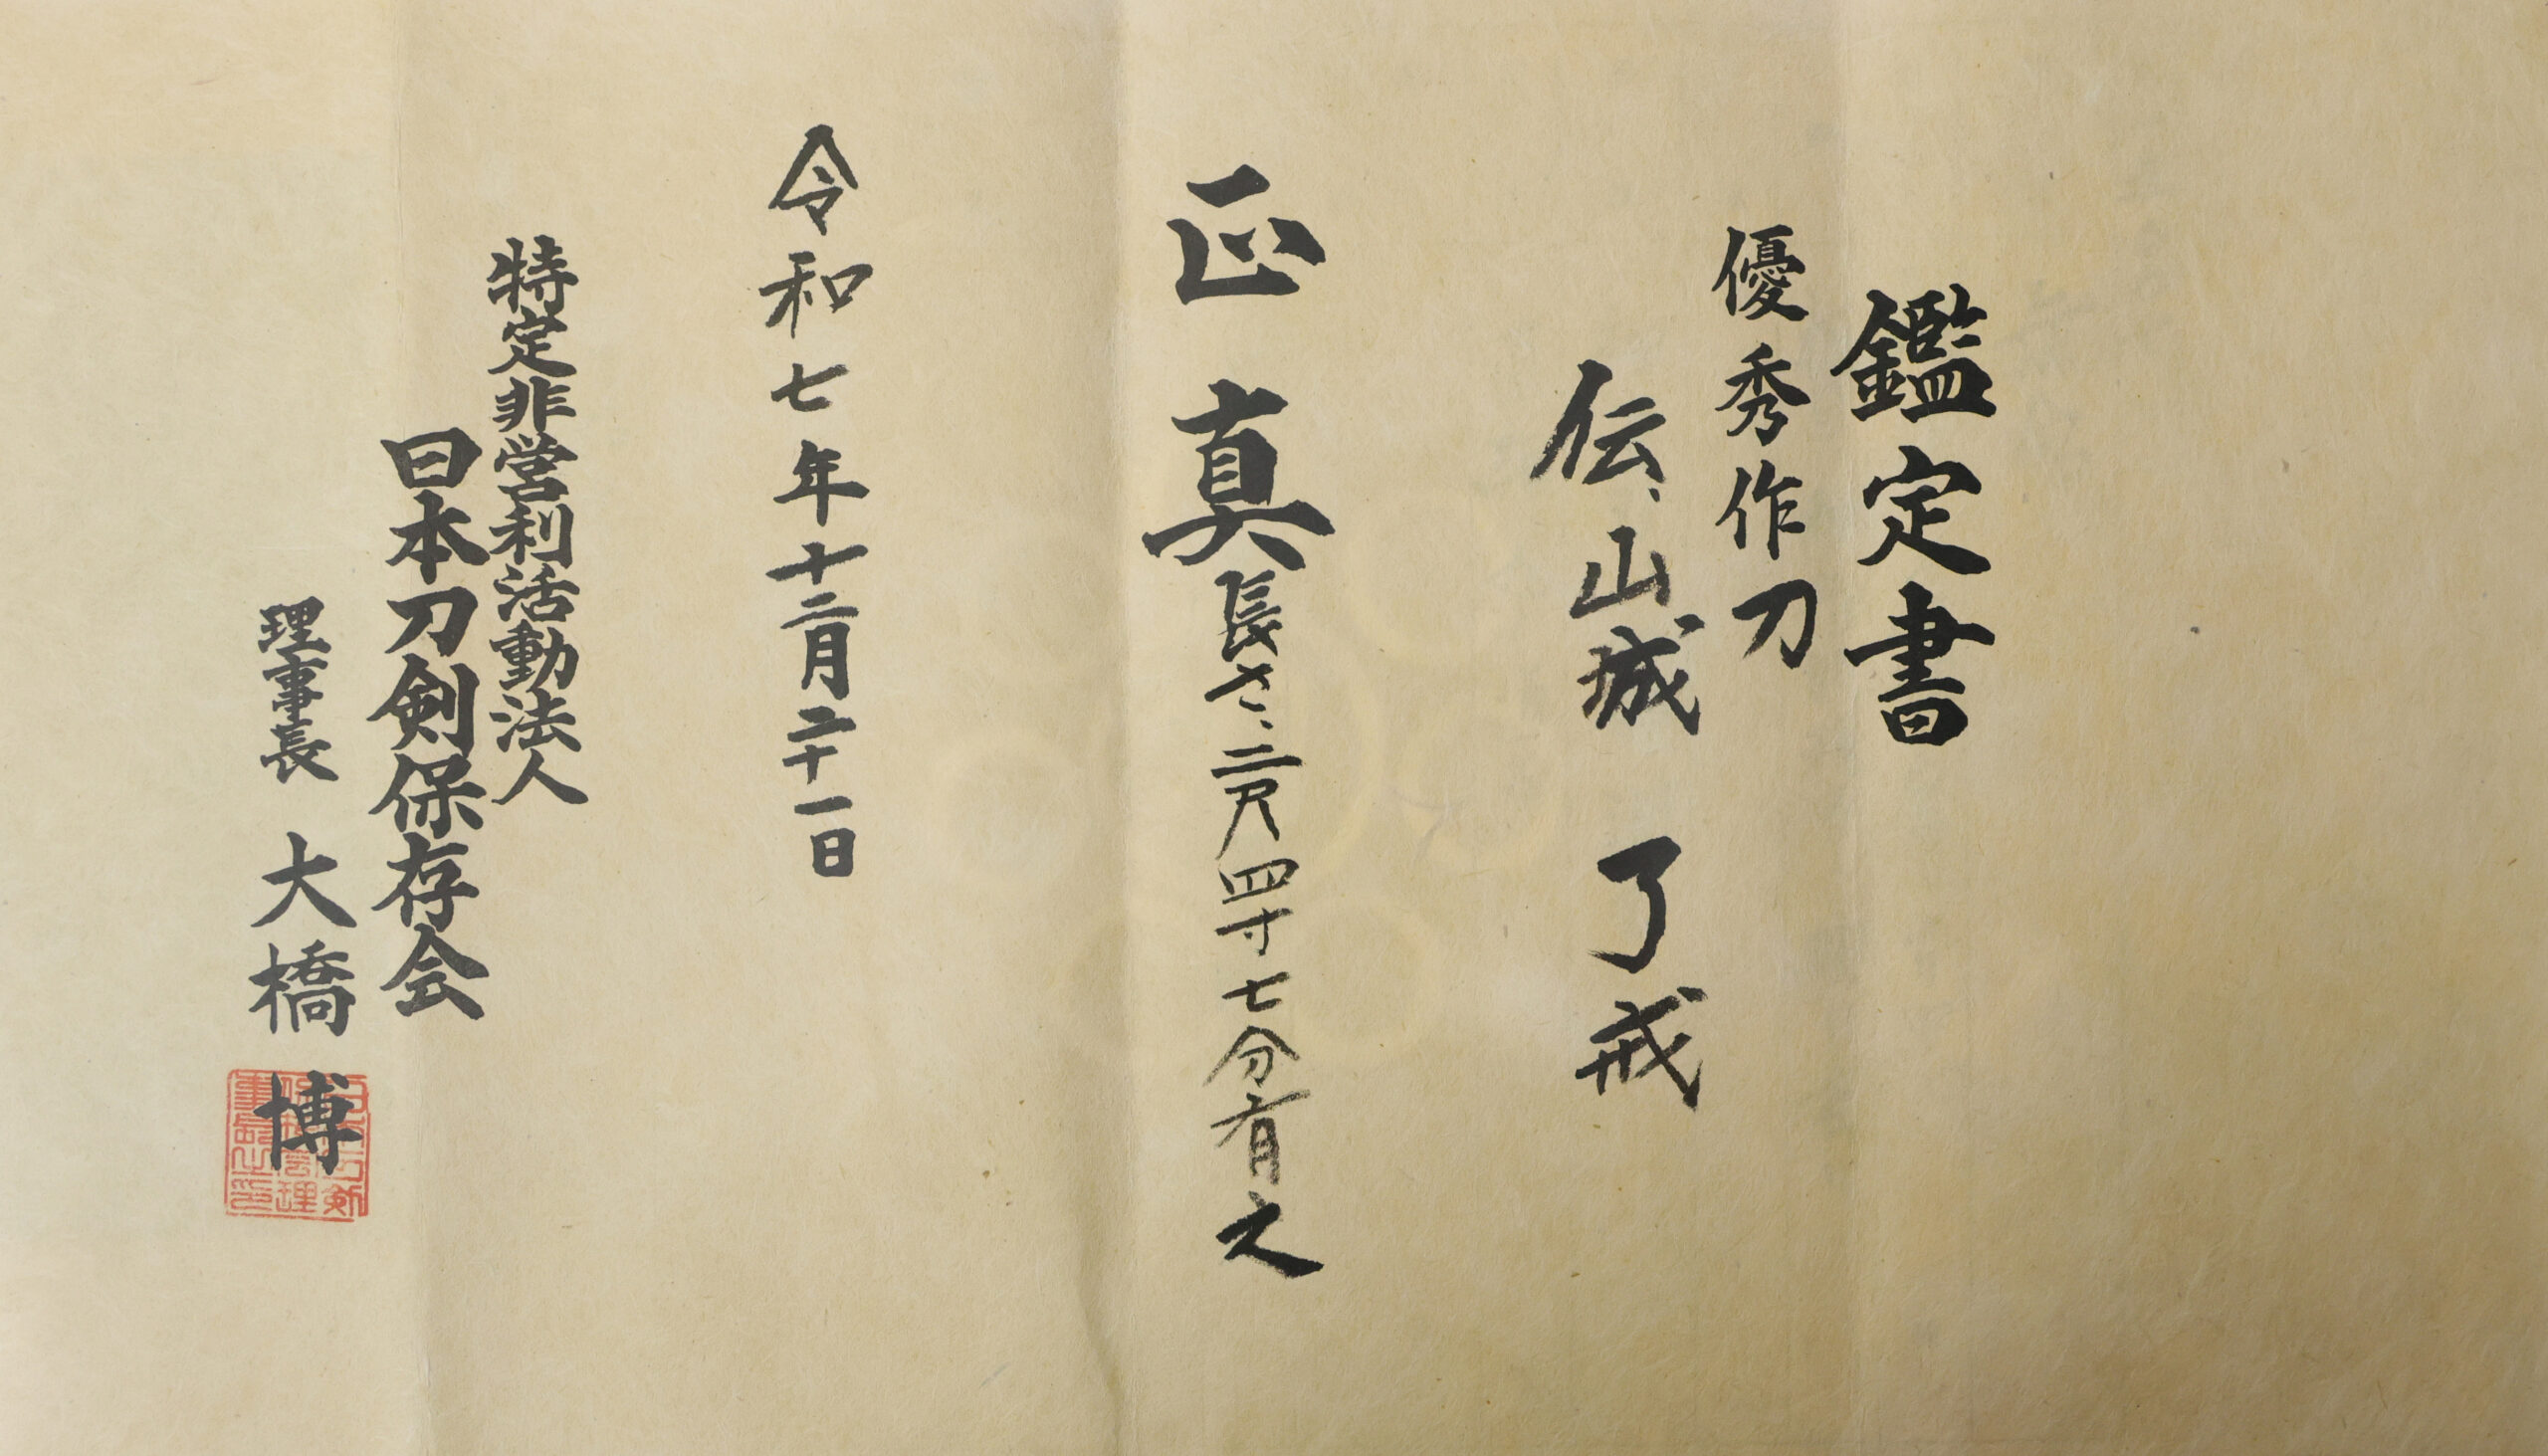 鑑定書
優秀作刀
伝山城 了戒
正真 長さ二尺四寸七分有之
令和七年十二月二十一日
特定非営利活動法人
日本刀剣保存会
理事長 大橋 博